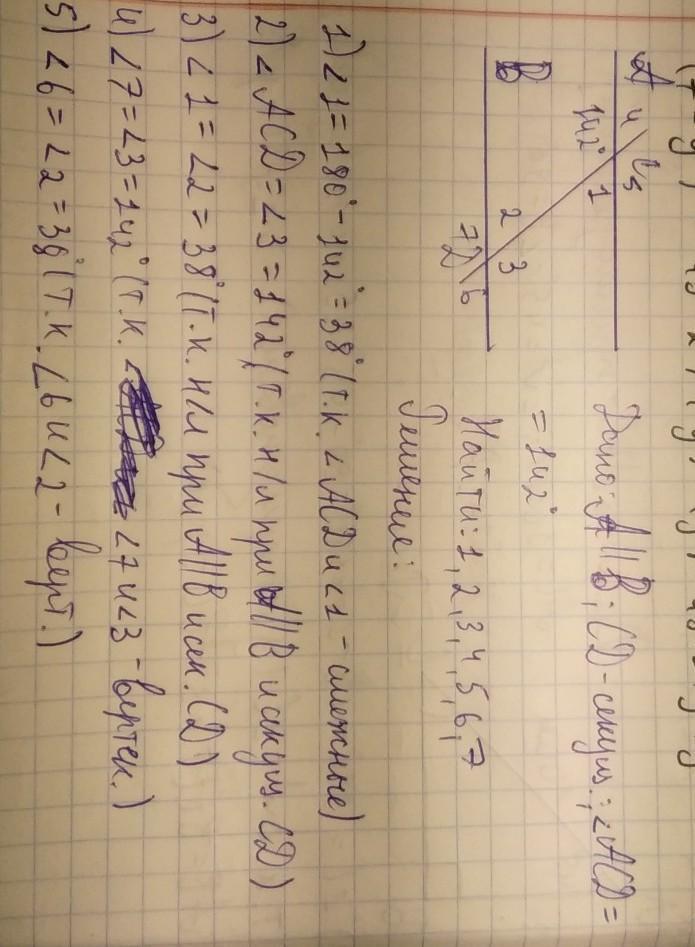 A 4 C 5
142° 1
B 2 3
7 D 6
Дано: A || B; CD - секущ.; ∠ACD =
= 142°
Найти: 1, 2, 3, 4, 5, 6, 7
Решение:
1) ∠1 = 180° - 142° = 38° (т.к. ∠ACD и ∠1 - смежные)
2) ∠ACD = ∠3 = 142° (т.к. н/л при A || B и секущ. CD)
3) ∠1 = ∠2 = 38° (т.к. н/л при A || B и сек. CD)
4) ∠7 = ∠3 = 142° (т.к. ∠7 и ∠3 - вертек.)
5) ∠6 = ∠2 = 38° (т.к. ∠6 и ∠2 - верт.)